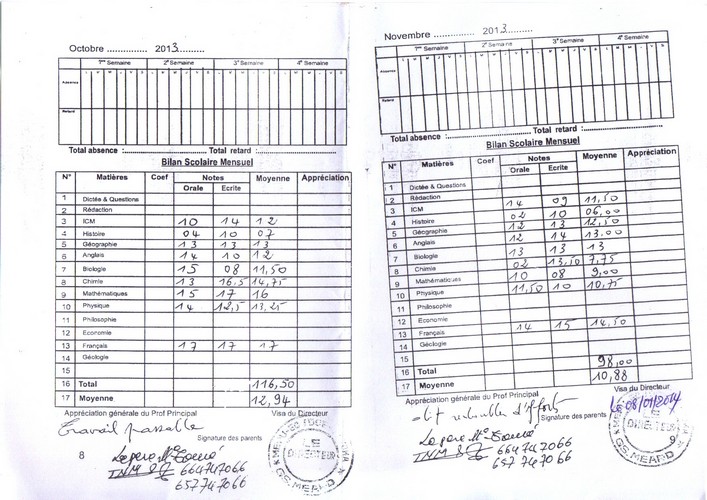 Octobre .............. 2013.........
1ère Semaine 2è Semaine 3è Semaine 4è Semaine
Absence
Retard
Total absence :........................... Total retard :...........................
Bilan Scolaire Mensuel
N° Matières Coef Notes Moyenne Appréciation
Orale Ecrite
1 Dictée & Questions
2 Rédaction
3 ICM 10 14 12
4 Histoire 04 10 07
5 Géographie 13 13 13
6 Anglais 14 10 12
7 Biologie 15 08 11,50
8 Chimie 13 16,5 14,75
9 Mathématiques 15 17 16
10 Physique 14 12,5 13,25
11 Philosophie
12 Economie
13 Français 17 17 17
14 Géologie
15
16 Total 116,50
17 Moyenne 12,94
Appréciation générale du Prof Principal Visa du Directeur
Travail passable
Signature des parents
Le père Mr
664747066
657747066
LE
DIRECTEUR
8
Novembre .............. 2013.........
1ère Semaine 2è Semaine 3è Semaine 4è Semaine
Absence
Retard
Total absence :........................... Total retard :...........................
Bilan Scolaire Mensuel
N° Matières Coef Notes Moyenne Appréciation
Orale Ecrite
1 Dictée & Questions
2 Rédaction
3 ICM 14 09 11,50
4 Histoire 02 10 06,00
5 Géographie 12 13 12,50
6 Anglais 12 14 13.00
7 Biologie 13 13 13
8 Chimie 02 13,50 7,75
9 Mathématiques 10 08 9,00
10 Physique 11,50 10 10,75
11 Philosophie
12 Economie
13 Français 14 15 14,50
14 Géologie
15
16 Total 98,00
17 Moyenne 10,88
Appréciation générale du Prof Principal Visa du Directeur
d'Efforts
Le 08/01/2014
Signature des parents
Le père Mr
664747066
657747066
DIRECTEUR
9